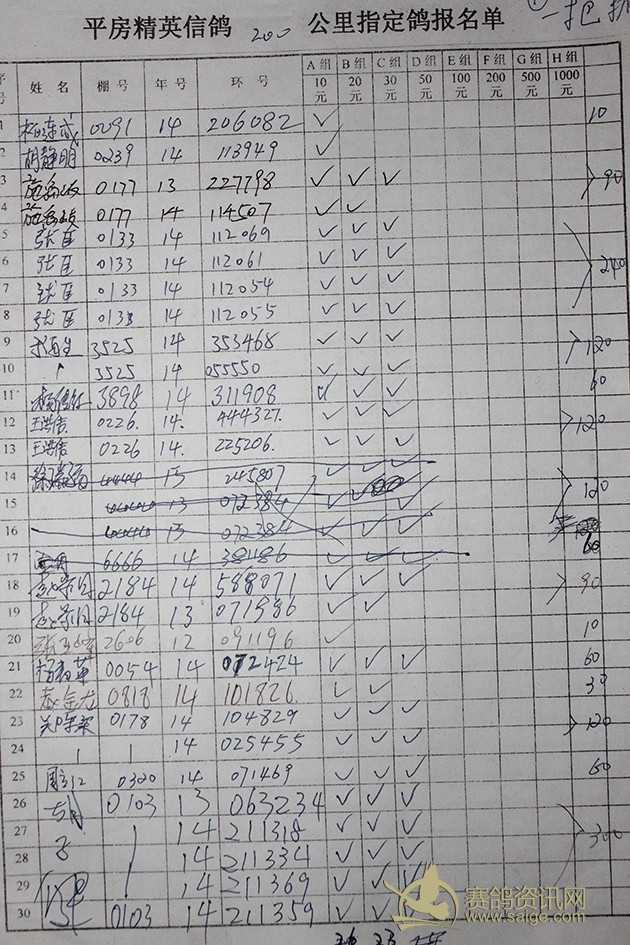 平房精英信鸽 200 公里指定鸽报名单
号 姓 名 棚 号 年 号 环 号 A组 10元 B组 20元 C组 30元 D组 50元 E组 100元 F组 200元 G组 500元 H组 1000元
1 0091 14 206082 ✓ 10
2 胡静明 0239 14 113949 ✓
3 0177 13 227798 ✓ ✓ ✓ 90
4 0177 14 114507 ✓ ✓
5 张臣 0133 14 112069 ✓ ✓ ✓
6 张臣 0133 14 112061 ✓ ✓ ✓ 240
7 张臣 0133 14 112054 ✓ ✓ ✓
8 张臣 0133 14 112055 ✓ ✓ ✓
9 3525 14 353468 ✓ ✓ ✓ 120
10 〃 3525 14 055550 ✓ ✓ ✓
11 3898 14 311908 ✓ ✓ ✓ 60
12 王洪信 0226. 14. 444327. ✓ ✓ ✓ 120
13 王洪信 0226 14. 225206. ✓ ✓ ✓
14 13 245807 ✓ ✓ ✓
15 13 072384 ✓ ✓ 120
16 13 072384 ✓ ✓ ✓
17 6666 14 381186 ✓ ✓ ✓ 60
18 2184 14 588071 ✓ ✓ ✓ 90
19 2184 13 071986 ✓ ✓
20 2606 12 091196 ✓ 10
21 0054 14 072424 ✓ ✓ ✓ 60
22 0818 14 101826. ✓ ✓ 30
23 0178 14 104829 ✓ ✓ ✓ 120
24 14 025455 ✓ ✓ ✓
25 0320 14 071469 ✓ ✓ ✓ 60
26 0103 13 063234 ✓ ✓ ✓
27 14 211318 ✓ ✓ ✓ 300
28 14 211334 ✓ ✓ ✓
29 14 211369 ✓ ✓ ✓
30 0103 14 211359 ✓ ✓ ✓
赛鸽资讯网
www.saige.com